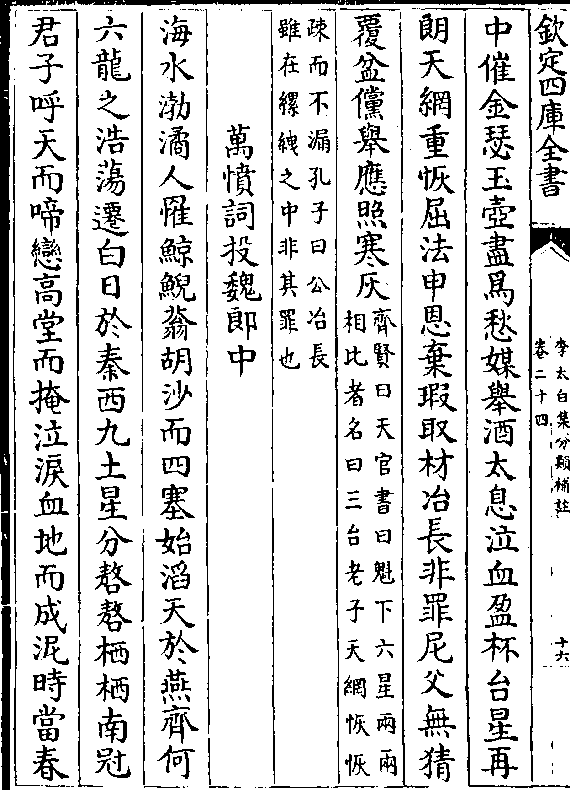 欽定四庫全書
李太白集分類補註
卷二十四
十六
中催金瑟玉壺盡爲愁媒舉酒太息泣血盈杯台星再
朗天網重恢屈法申恩棄瑕取材冶長非罪尼父無猜
覆盆儻舉應照寒灰
齊賢曰天官書曰魁下六星兩兩
相比者名曰三台老子天網恢恢
疎而不漏孔子曰公冶長
雖在縲絏之中非其罪也
萬憤詞投魏郎中
海水渤潏人罹鯨鯢蓊胡沙而四塞始滔天於燕齊何
六龍之浩蕩遷白日於秦西九土星分嗸嗸栖栖南冠
君子呼天而啼戀高堂而掩泣淚血地而成泥時當春